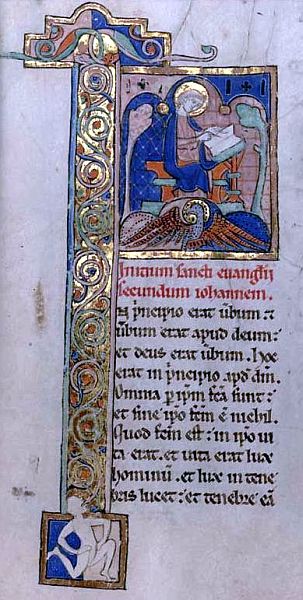 Inicium sancti euangelij
secundum iohannem.
In principio erat uerbum: et
uerbum erat apud deum:
et deus erat uerbum. hoc
erat in principio apud dm.
Omnia per ipm fca sunt:
et sine ipo fcm e nichil.
Quod fcm est: in ipo ui
ta erat. et uita erat lux
hominum. et lux in tene
bris lucet: et tenebre ea